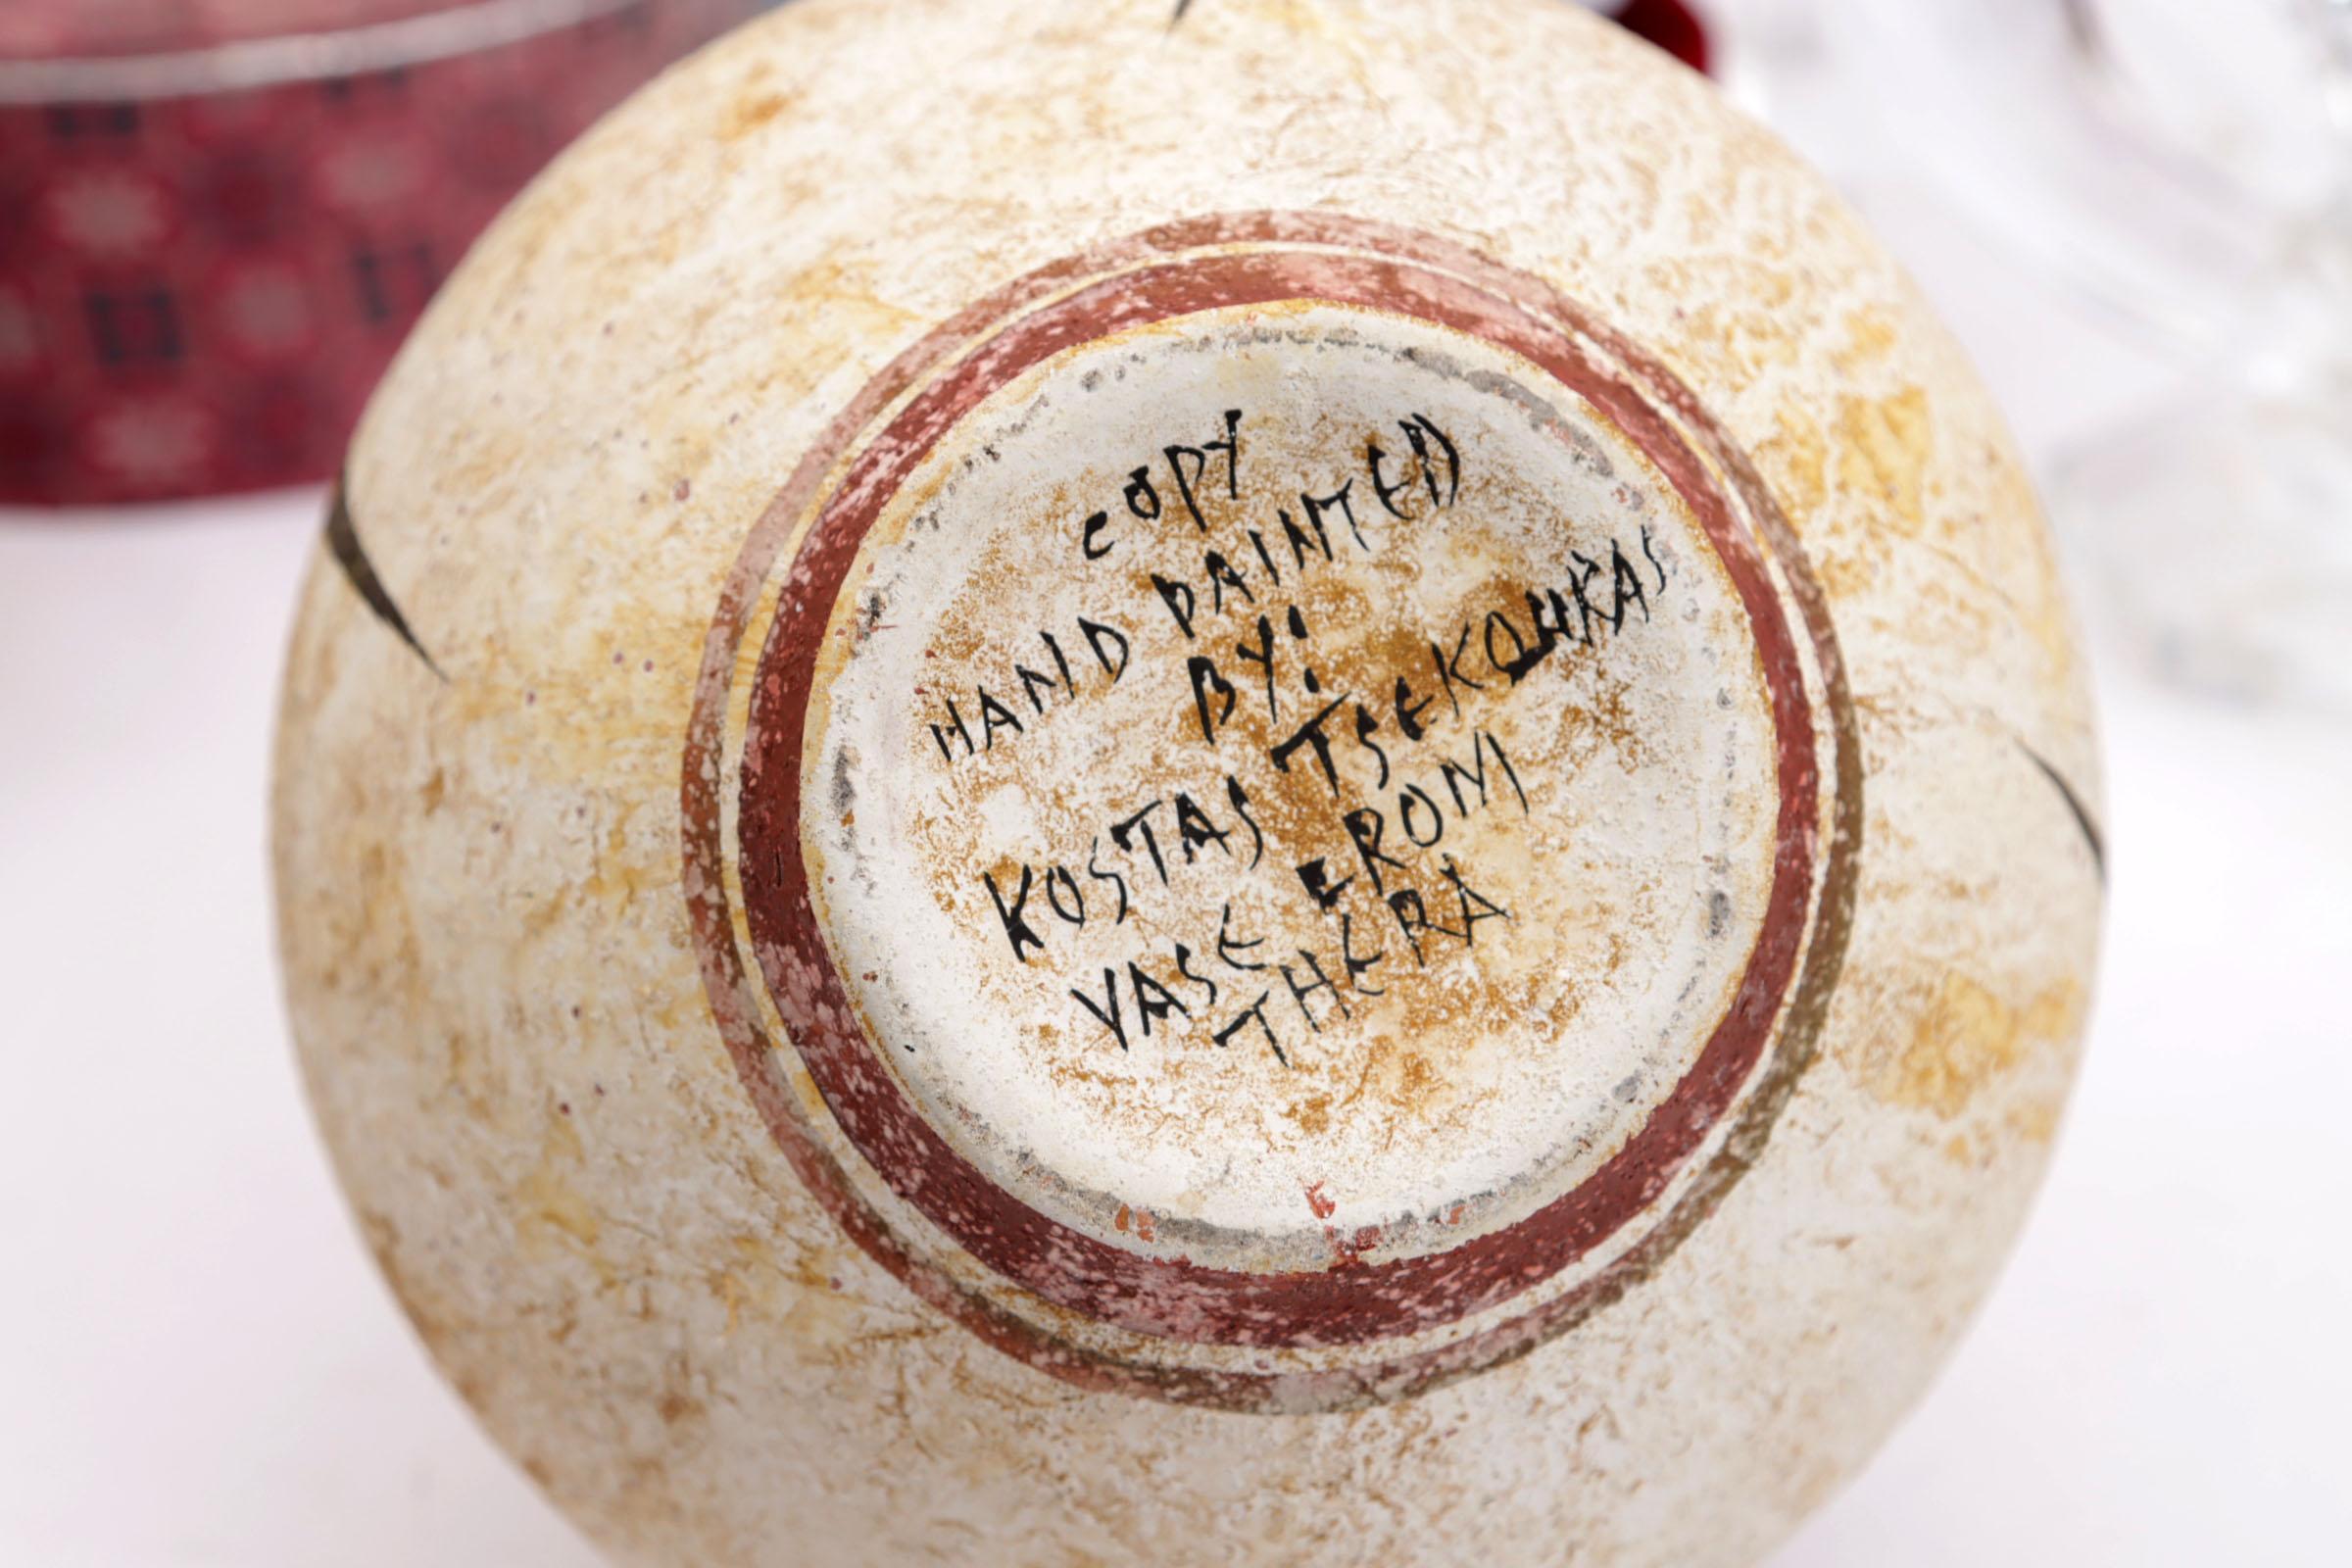 COPY
HAND PAINTED
BY:
KOSTAS TSEKOURAS
VASE FROM
THERA